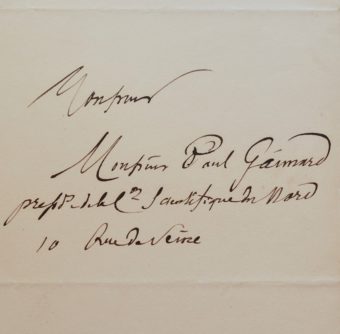 Monsieur
Monsieur Paul Gaimard
présdt. de la Con Scientifique du Nord
10 Rue de Seine